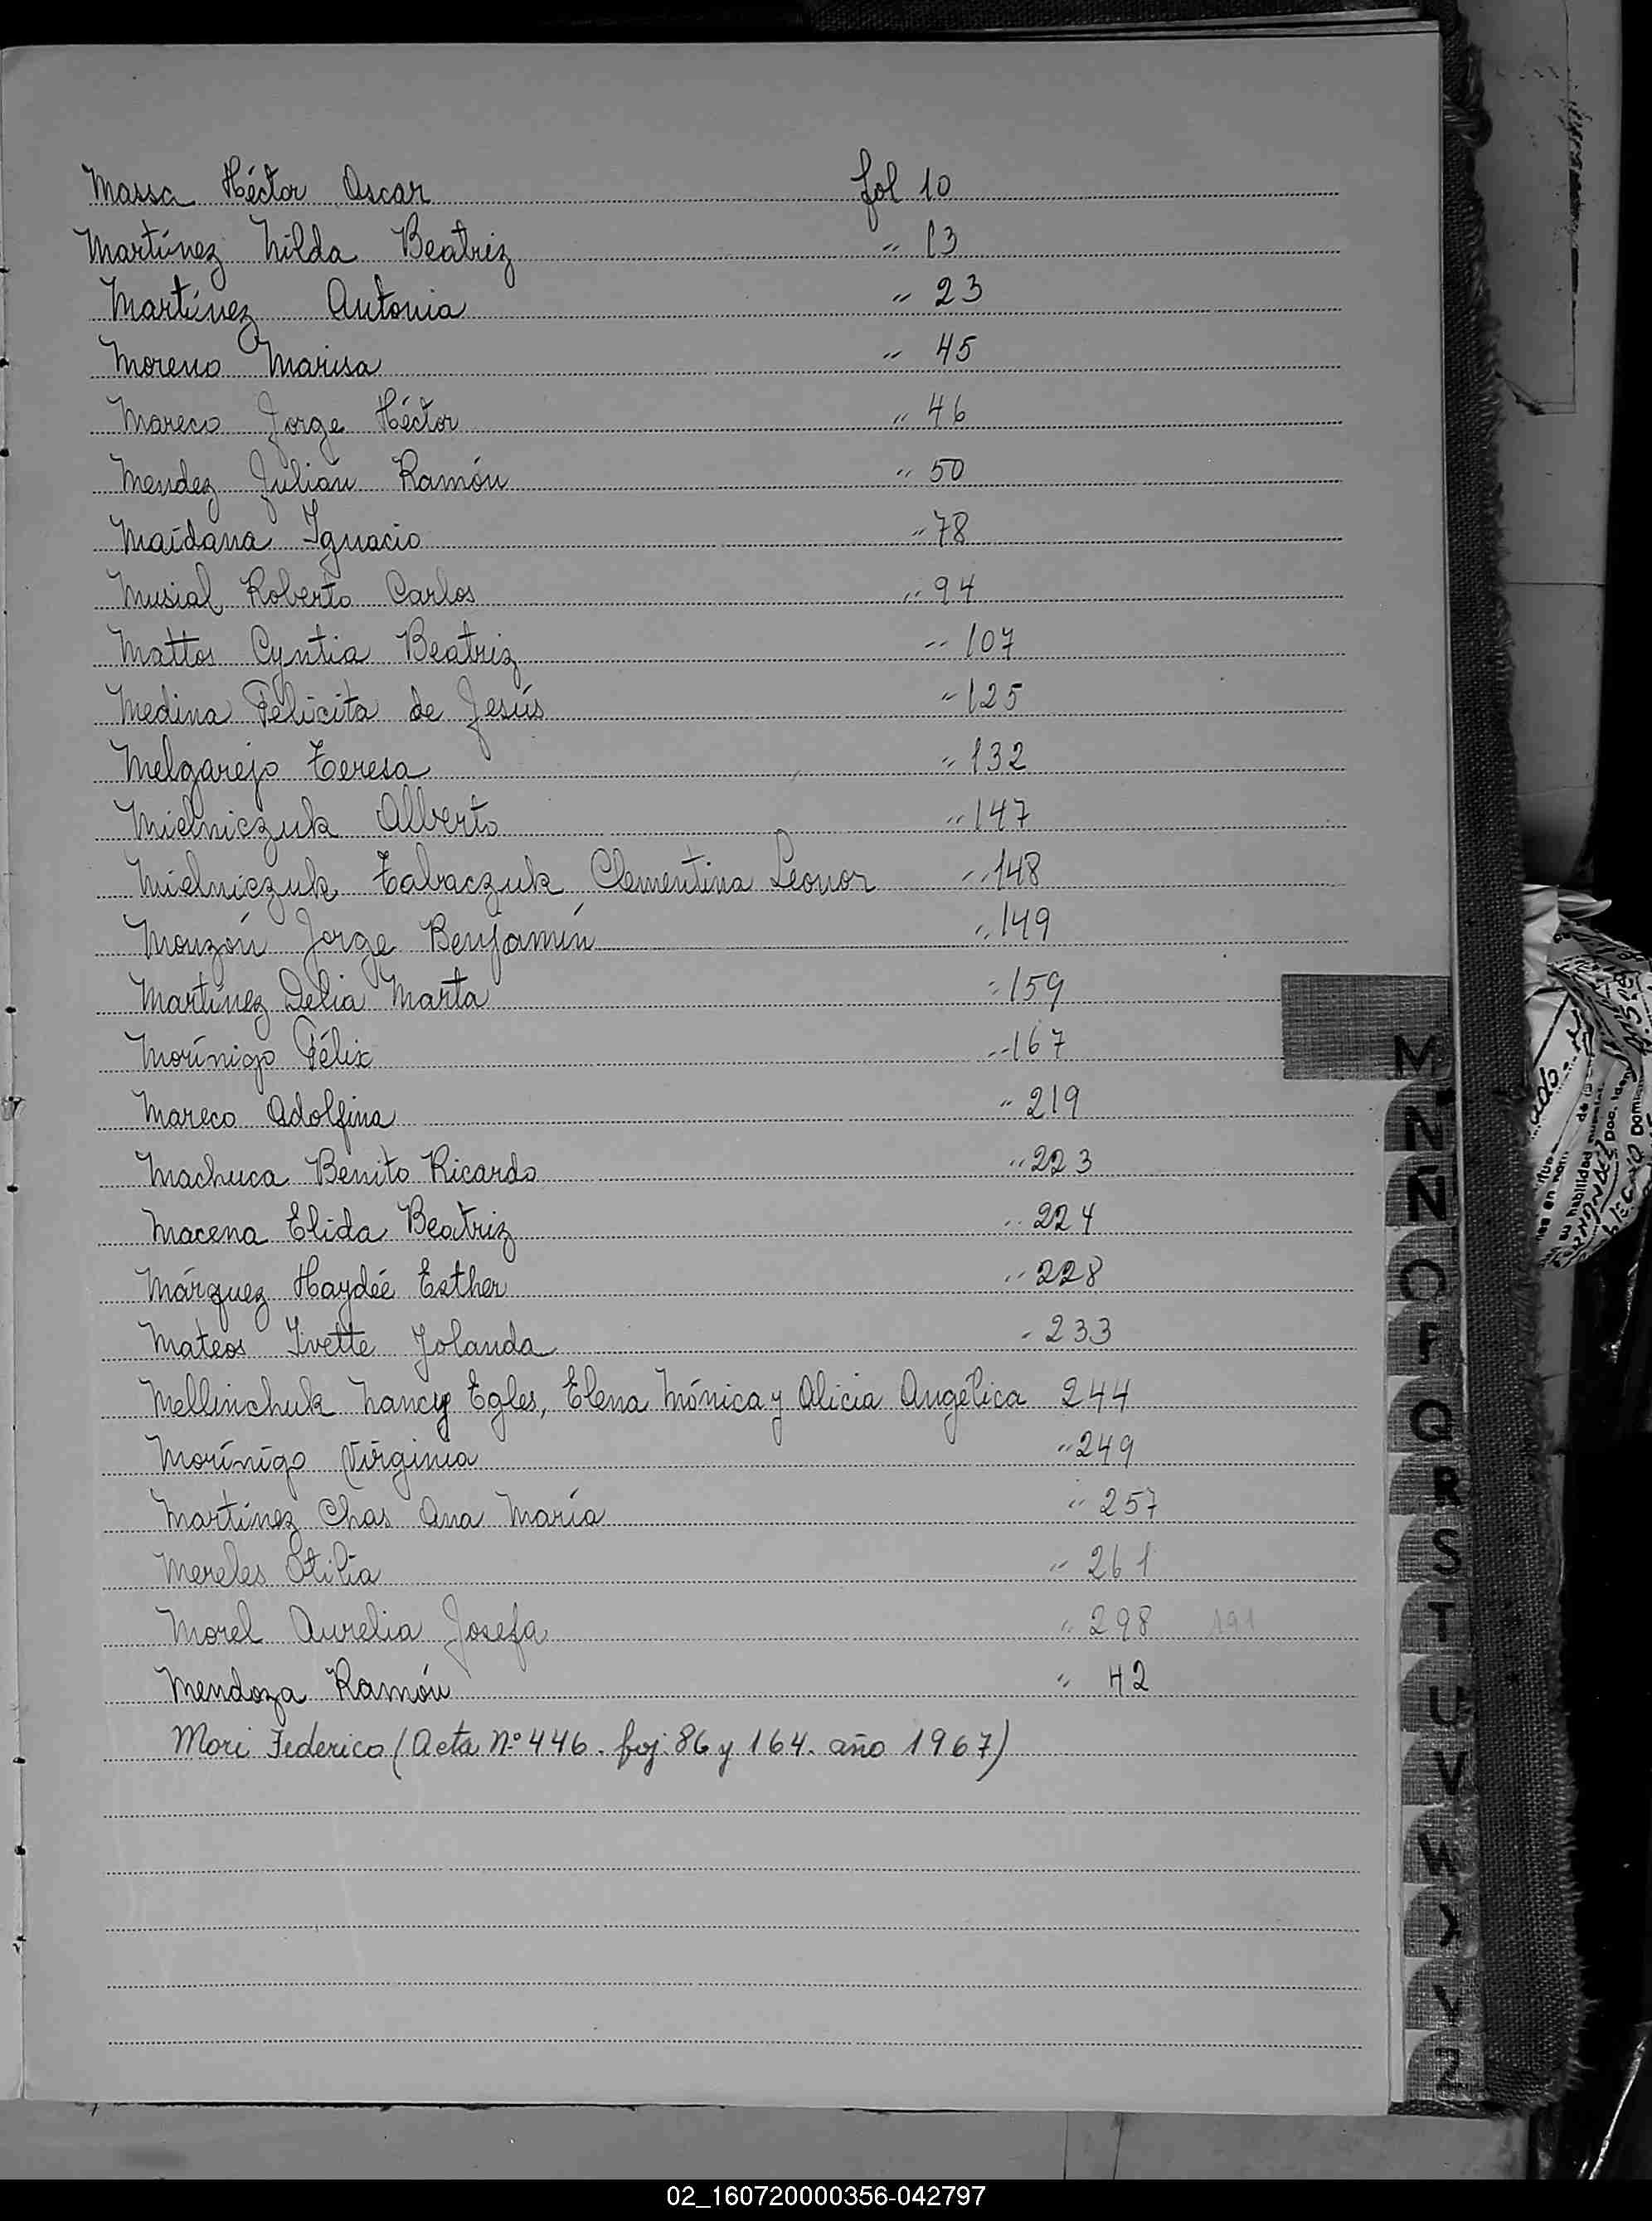 Massa Héctor Oscar fol 10
Martínez Nilda Beatriz " 13
Martínez Antonia " 23
Moreno Marisa " 45
Mareco Jorge Héctor " 46
Mendez Julián Ramón " 50
Maidana Ignacio " 78
Musial Roberto Carlos " 94
Mattos Cyntia Beatriz " 107
Medina Felicita de Jesús " 125
Melgarejo Teresa " 132
Mielniczuk Alberto " 147
Mielniczuk Tabaczuk Clementina Leonor " 148
Monzón Jorge Benjamín " 149
Martínez Delia Marta " 159
Morínigo Félix " 167
Mareco Adolfina " 219
Machuca Benito Ricardo " 223
Macena Elida Beatriz " 224
Márquez Haydée Esther " 228
Mateos Ivette Yolanda " 233
Mellinchuk Nancy Egles, Elena Mónica y Alicia Angélica 244
Morínigo Virginia " 249
Martínez Chas Ana María " 257
Mereles Otilia " 261
Morel Aurelia Josefa " 298 191
Mendoza Ramón " 42
Mori Federico (Acta Nº 446. foj. 86 y 164. año 1967)
M
N
Ñ
O
P
Q
R
S
T
U
V
W
X
Y
Z
02_160720000356-042797